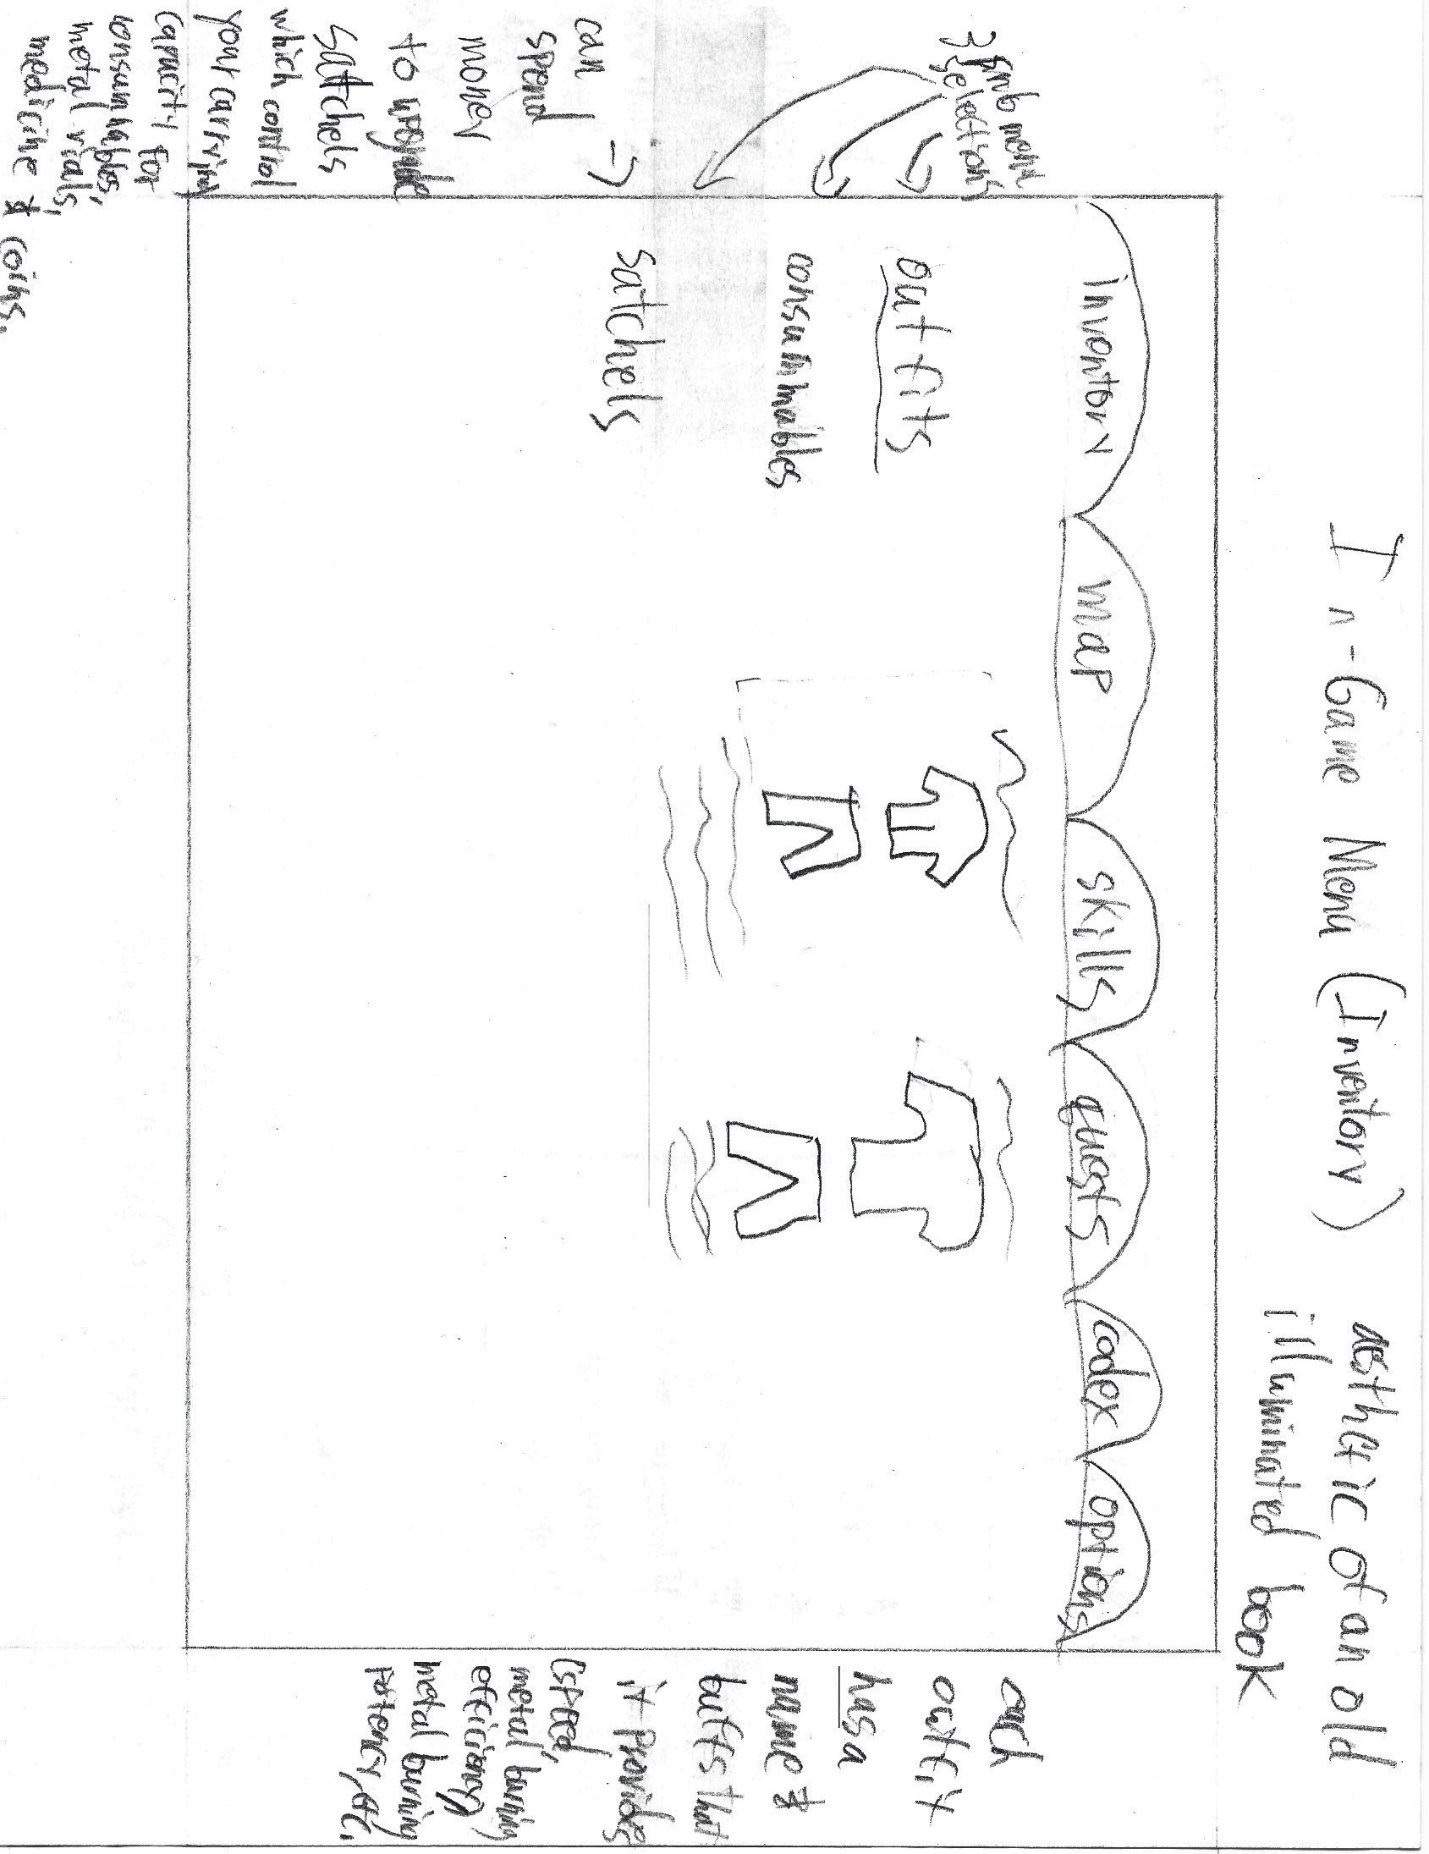 In-Game Menu (Inventory)
aesthetic of an old
illuminated book
3 sub menu
selections
inventory
map
skills
quests
codex
options
outfits
consummables
satchels
can
spend
money
to upgrade
satchels
which control
your carrying
capacity for
consumables,
metal vials,
medicine & coins.
each
outfit
has a
name &
buffs that
it provides
(speed,
metal burning
efficiency,
metal burning
potency, etc.